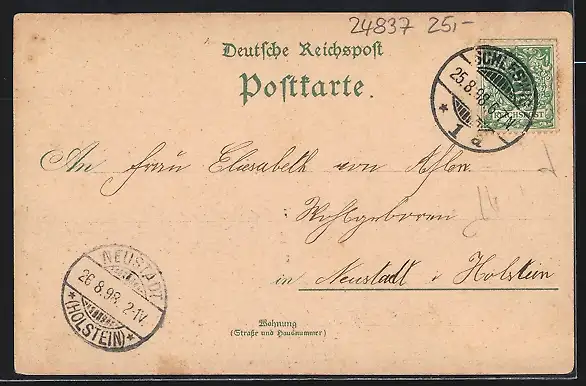 24837 25,-
Deutsche Reichspost
Postkarte.
SCHLESWIG
25.8.98.6-7N.
* 1 a
REICHSPOST
An Frau Elisabeth von
Wohlgeboren
in Neustadt i Holstein
NEUSTADT
26.8.98. 2-1V.
*(HOLSTEIN)*
Wohnung
(Straße und Hausnummer)